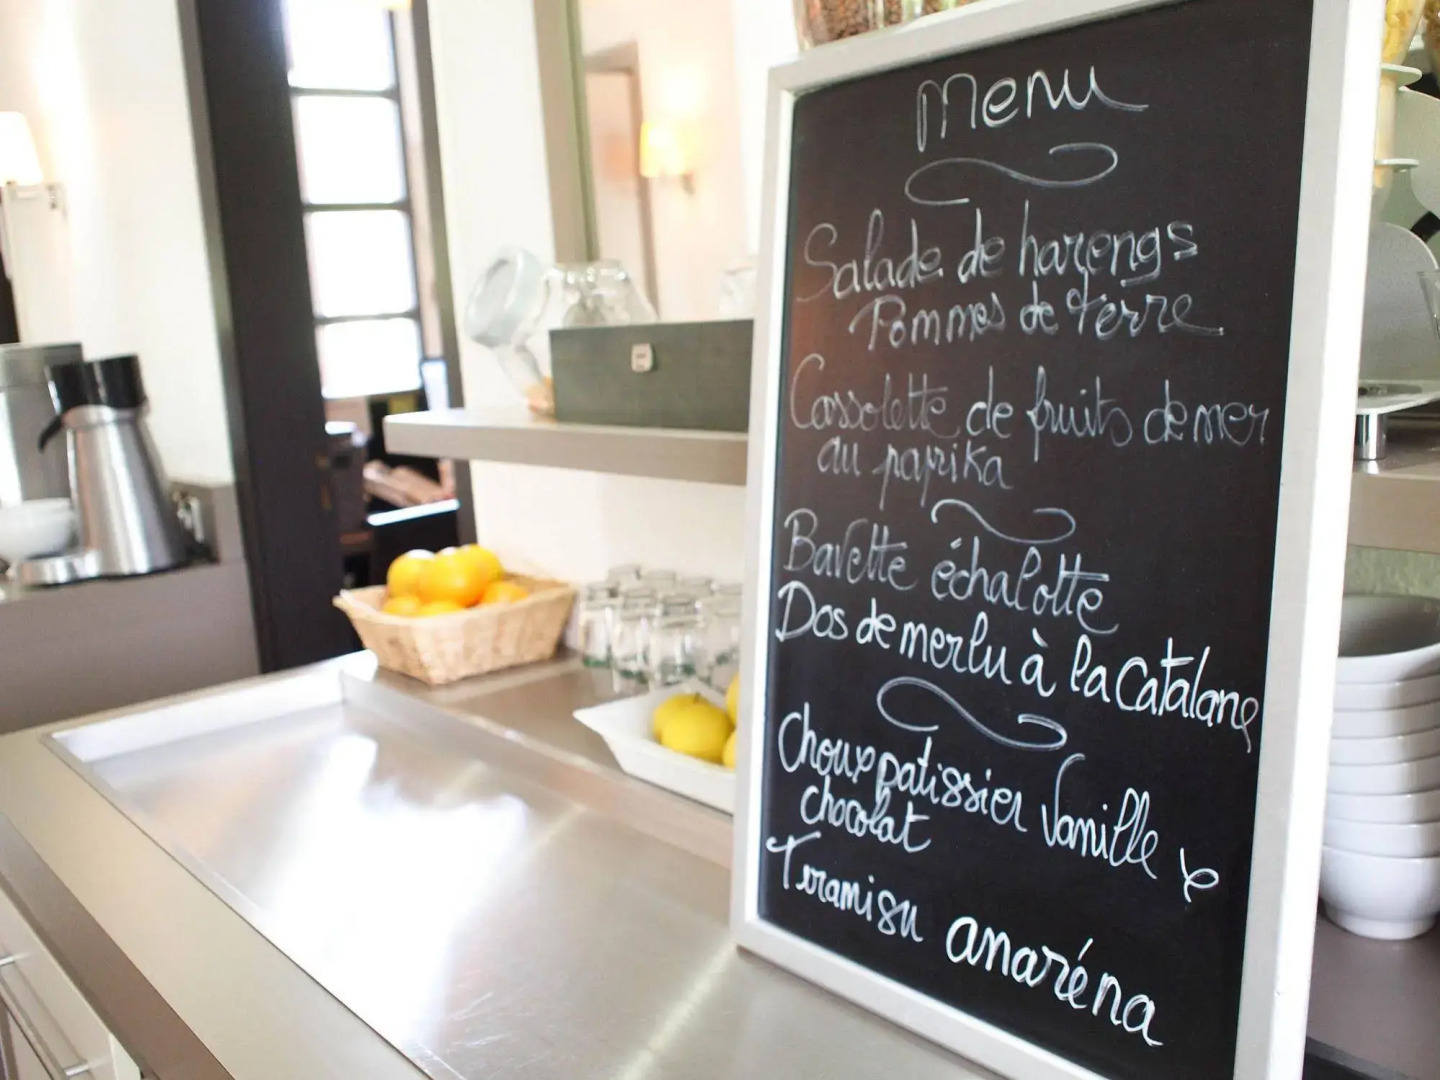 Menu
Salade de harengs
Pommes de terre
Cassolette de fruits de mer
au paprika
Bavette échalotte
Dos de merlu à la Catalane
Choux patissier Vanille &
chocolat
Tiramisu amaréna